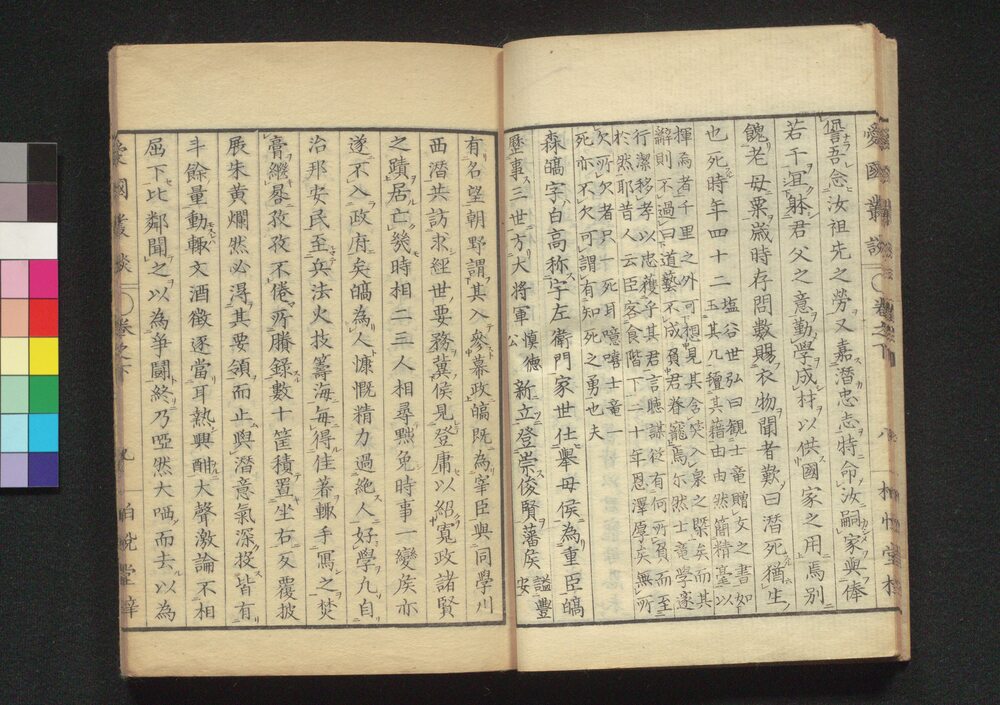 愛國叢談 卷之下 八 柏悅堂梓
吾念汝祖先之勞又嘉潛忠志特命汝嗣家與俸
若干冝躰君父之意勤學成材以供國家之用焉別
餽老母粟歲時存問數賜衣物聞者歎曰潛死猶生
也死時年四十二
塩谷世弘曰觀士竜贈女之書如
玉其几其藉由由然簡精臺以
揮焉者千里之外可想見其含笑入泉之際矣而其
辭則不過曰道藝不成負君眷寵焉尔然士竜學邃
行潔移孝以忠獲乎其君言聽謀從有何所負而至
於然耶昔人云臣客食階下二十年恩澤厚矣無所
欠所欠者只一死耳噫嘻士竜一
死亦不欠可謂有知死之勇也夫
森皜字白高称字左衛門家世仕舉母侯為重臣皜
歷事三世方大將軍慎德公新立登崇俊賢藩侯謚豐安
有名望朝野謂其入參幕政皜既為宰臣與同學川
西潛共訪求經世要務冀侯見登庸以紹寬政諸賢
之蹟居亡幾時相二三人相尋黜免時事一變侯亦
遂不入政府矣皜為人慷慨精力過絕人好學凢自
治那安民至兵法火技籌海每得佳著輙手寫之焚
膏繼晷孜孜不倦所謄錄數十筐積置坐右反覆披
展朱黄爛然必得其要領而止與潛意氣深投皆有
斗餘量動輙文酒徵逐當耳熱興酣大聲激論不相
屈下比鄰聞之以為爭鬪終乃啞然大哂而去以為
愛國叢談 卷之下 九 柏悅堂梓